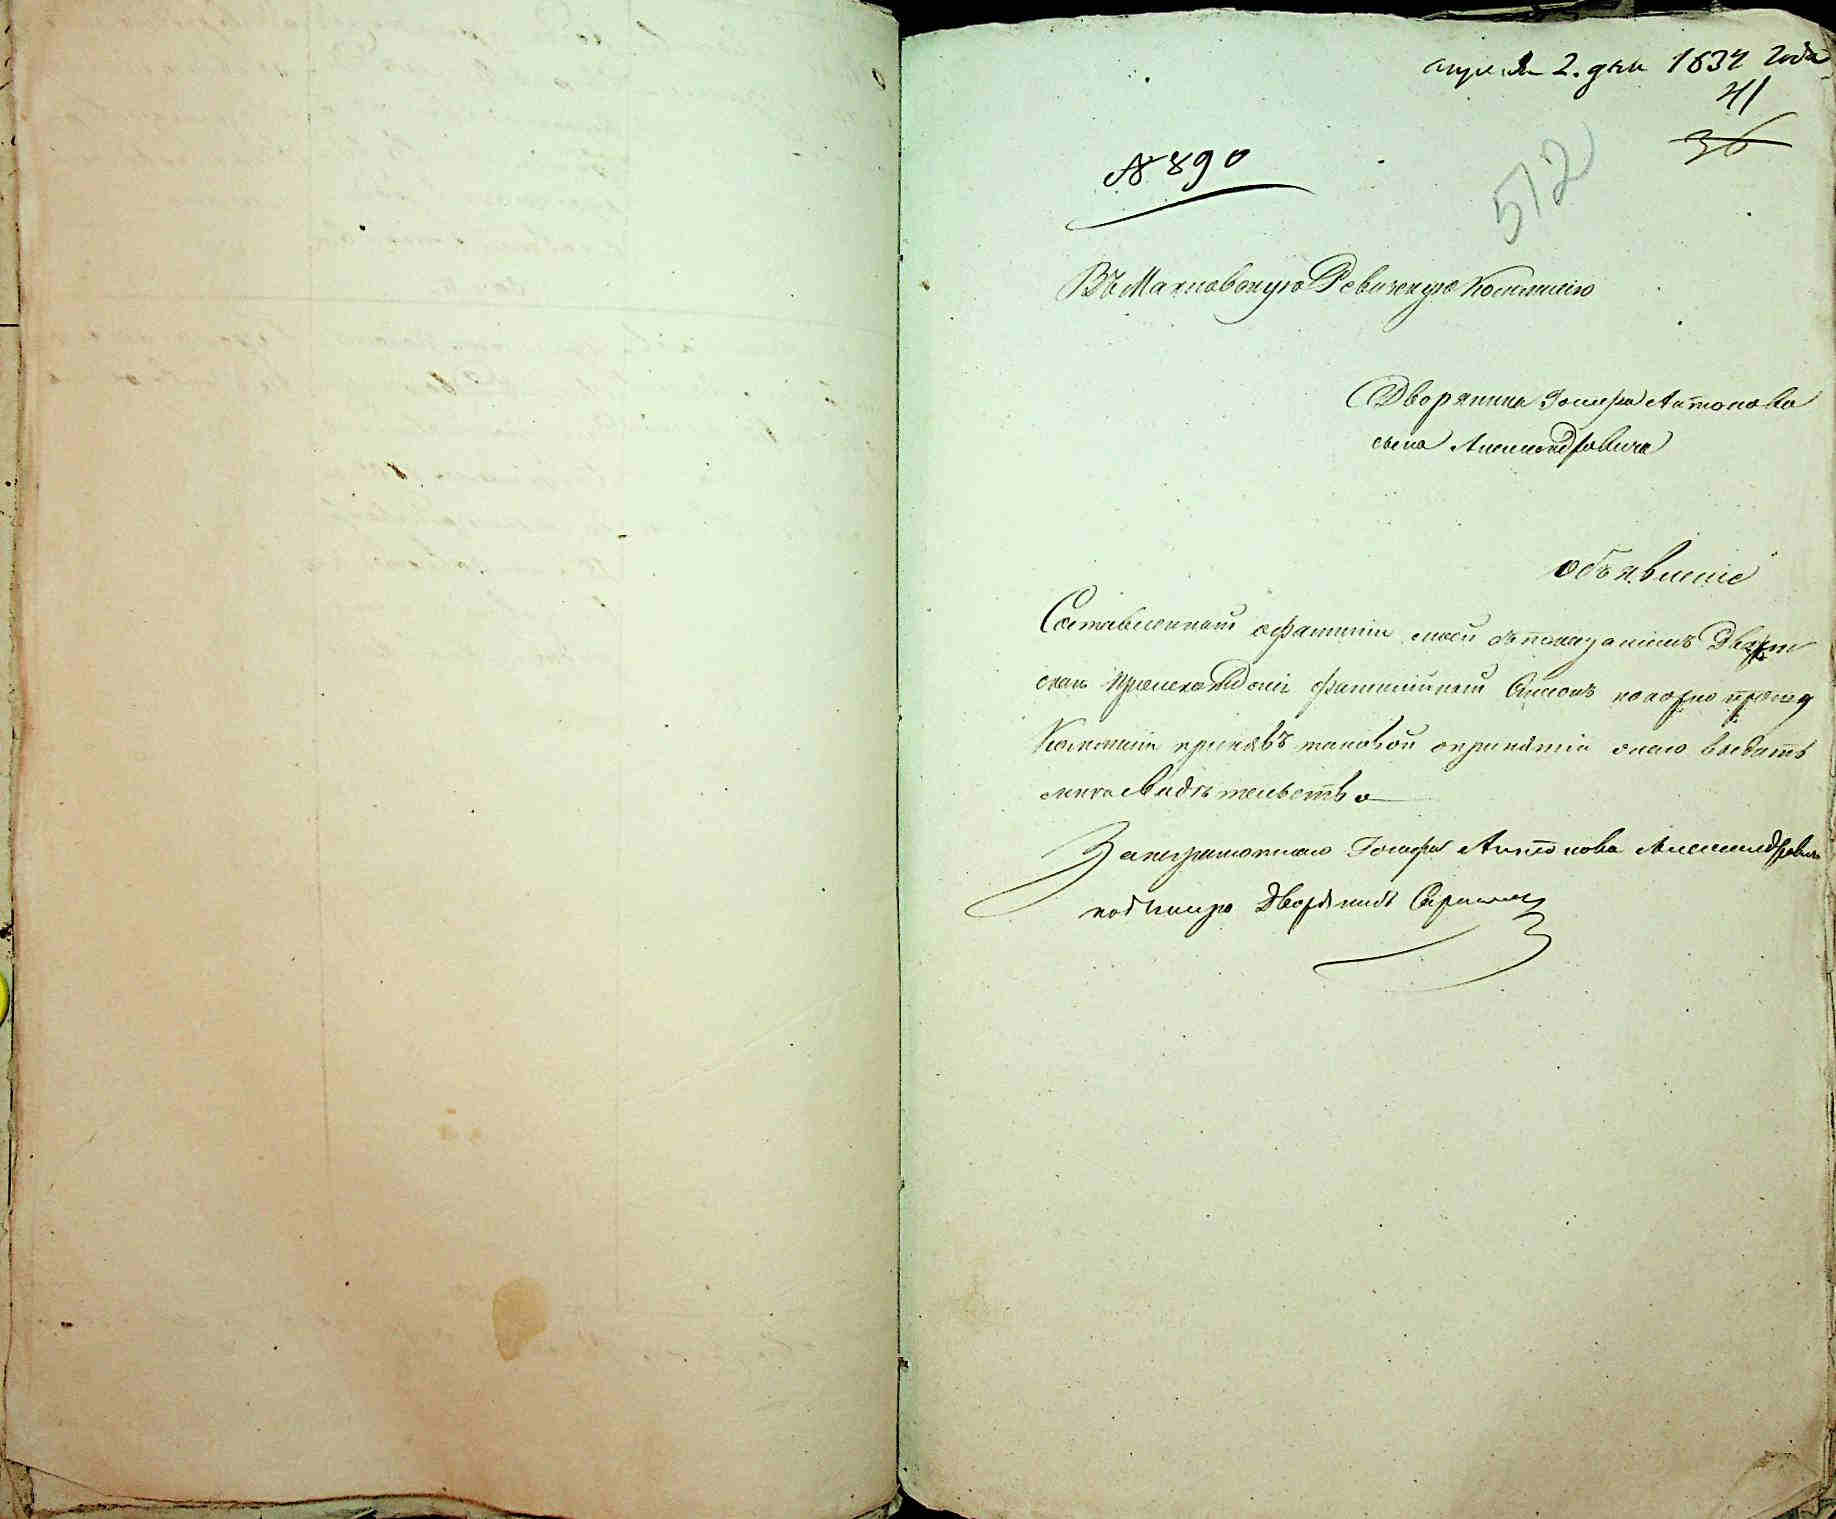 апреля 2. дня 1834 года
41
36
№ 890
512
Въ Махновскую Ревизскую Коммисію
Дворянина Іосифа Антонова
сына Александровича
Объявленіе
Составленный о фамиліи моей съ показаніемъ Дворян
скаго происхожденія фамилійный Списокъ покорно прошу
Коммисія принявъ таковой о принятіи онаго выдать
мнѣ свидѣтельство
За неграмотнаго Іосифа Антонова Александровича
подъписаль Дворянинъ